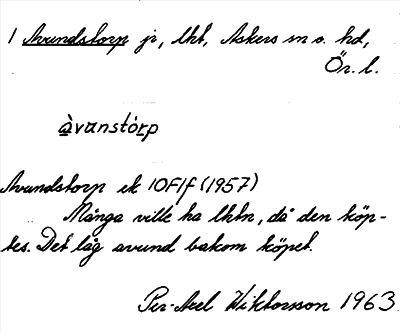 1 Avundstorp jr, lht, Askers sn o. hd,
Ör. l.
àvanstórp
Avundstorp ek 10F1f (1957)
Många ville ha lhtn, då den köp-
tes. Det låg avund bakom köpet.
Per-Axel Wiktorsson 1963